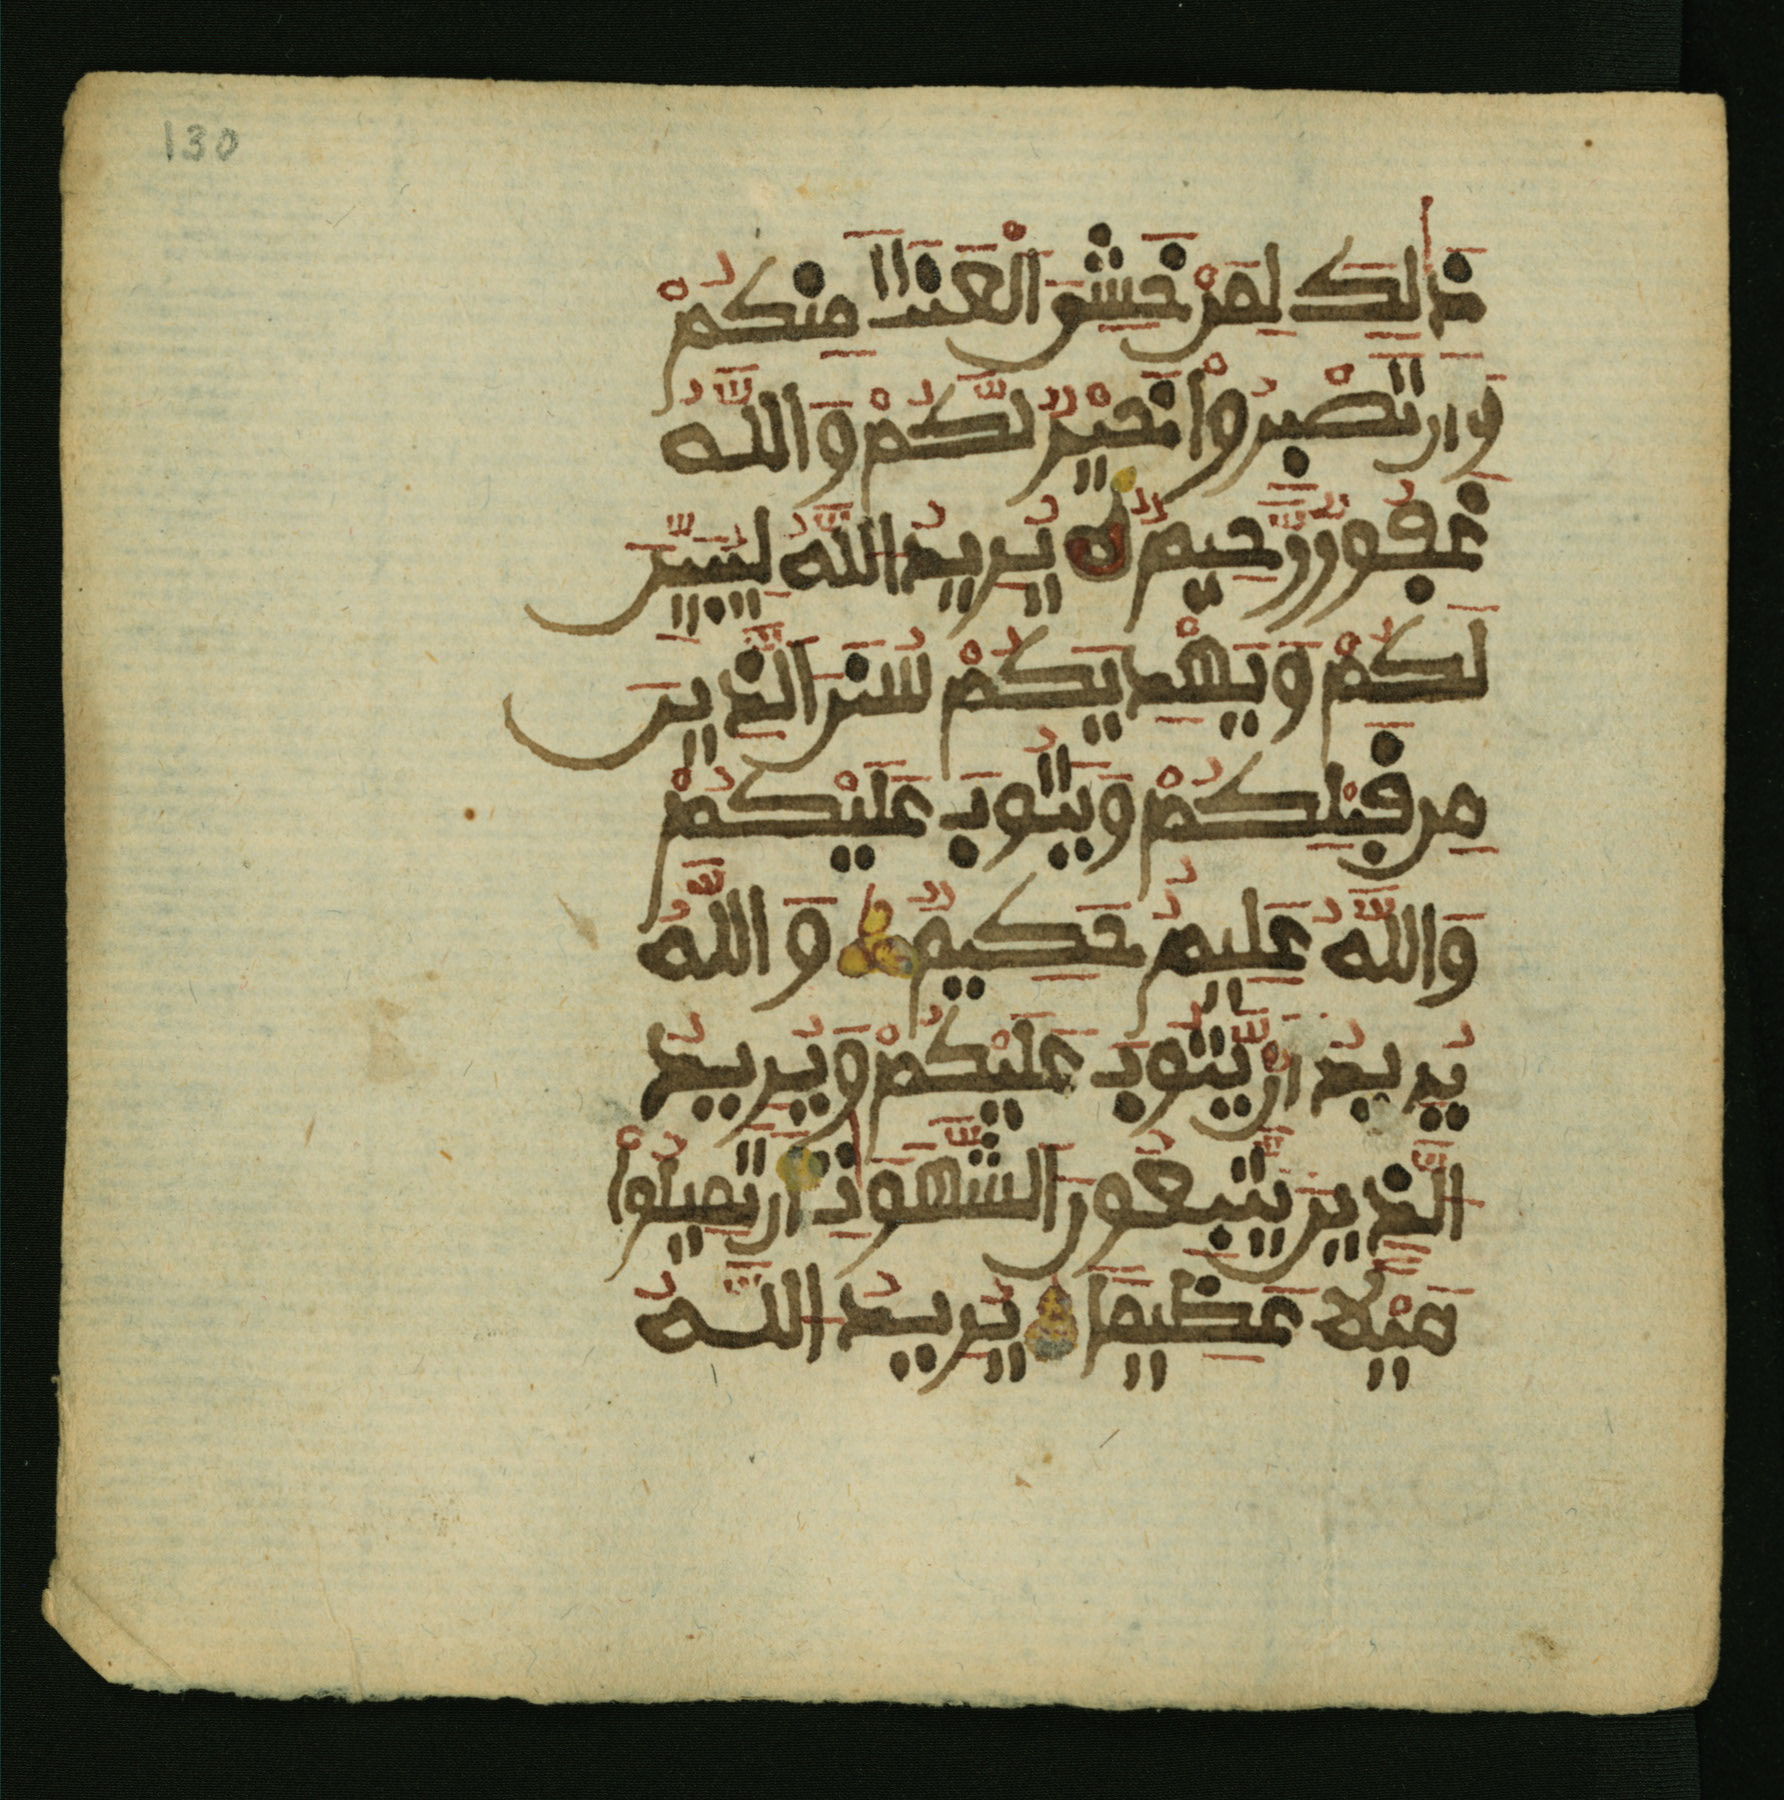 130
ذَٰلِكَ لِمَنْ خَشِيَ الْعَنَتَ مِنكُمْ
وَأَن تَصْبِرُواْ خَيْرٌ لَّكُمْ وَاللَّهُ
غَفُورٌ رَّحِيمٌ يُرِيدُ اللَّهُ لِيُبَيِّنَ
لَكُمْ وَيَهْدِيَكُمْ سُنَنَ الَّذِينَ
مِن قَبْلِكُمْ وَيَتُوبَ عَلَيْكُمْ
وَاللَّهُ عَلِيمٌ حَكِيمٌ وَاللَّهُ
يُرِيدُ أَنْ يَّتُوبَ عَلَيْكُمْ وَيُرِيدُ
الَّذِينَ يَتَّبِعُونَ الشَّهَوَٰتِ أَن تَمِيلُواْ
مَيْلًا عَظِيمًا يُرِيدُ اللَّهُ